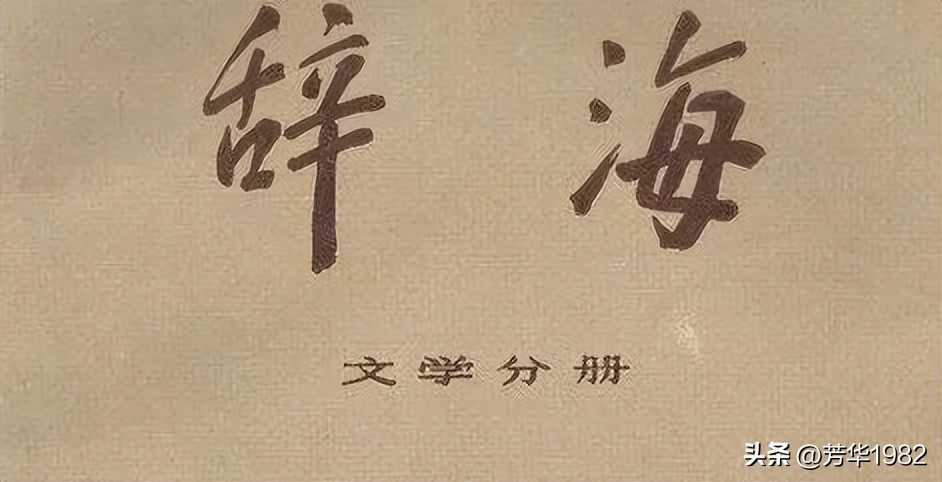 辞海
文学分册
头条 @芳华1982